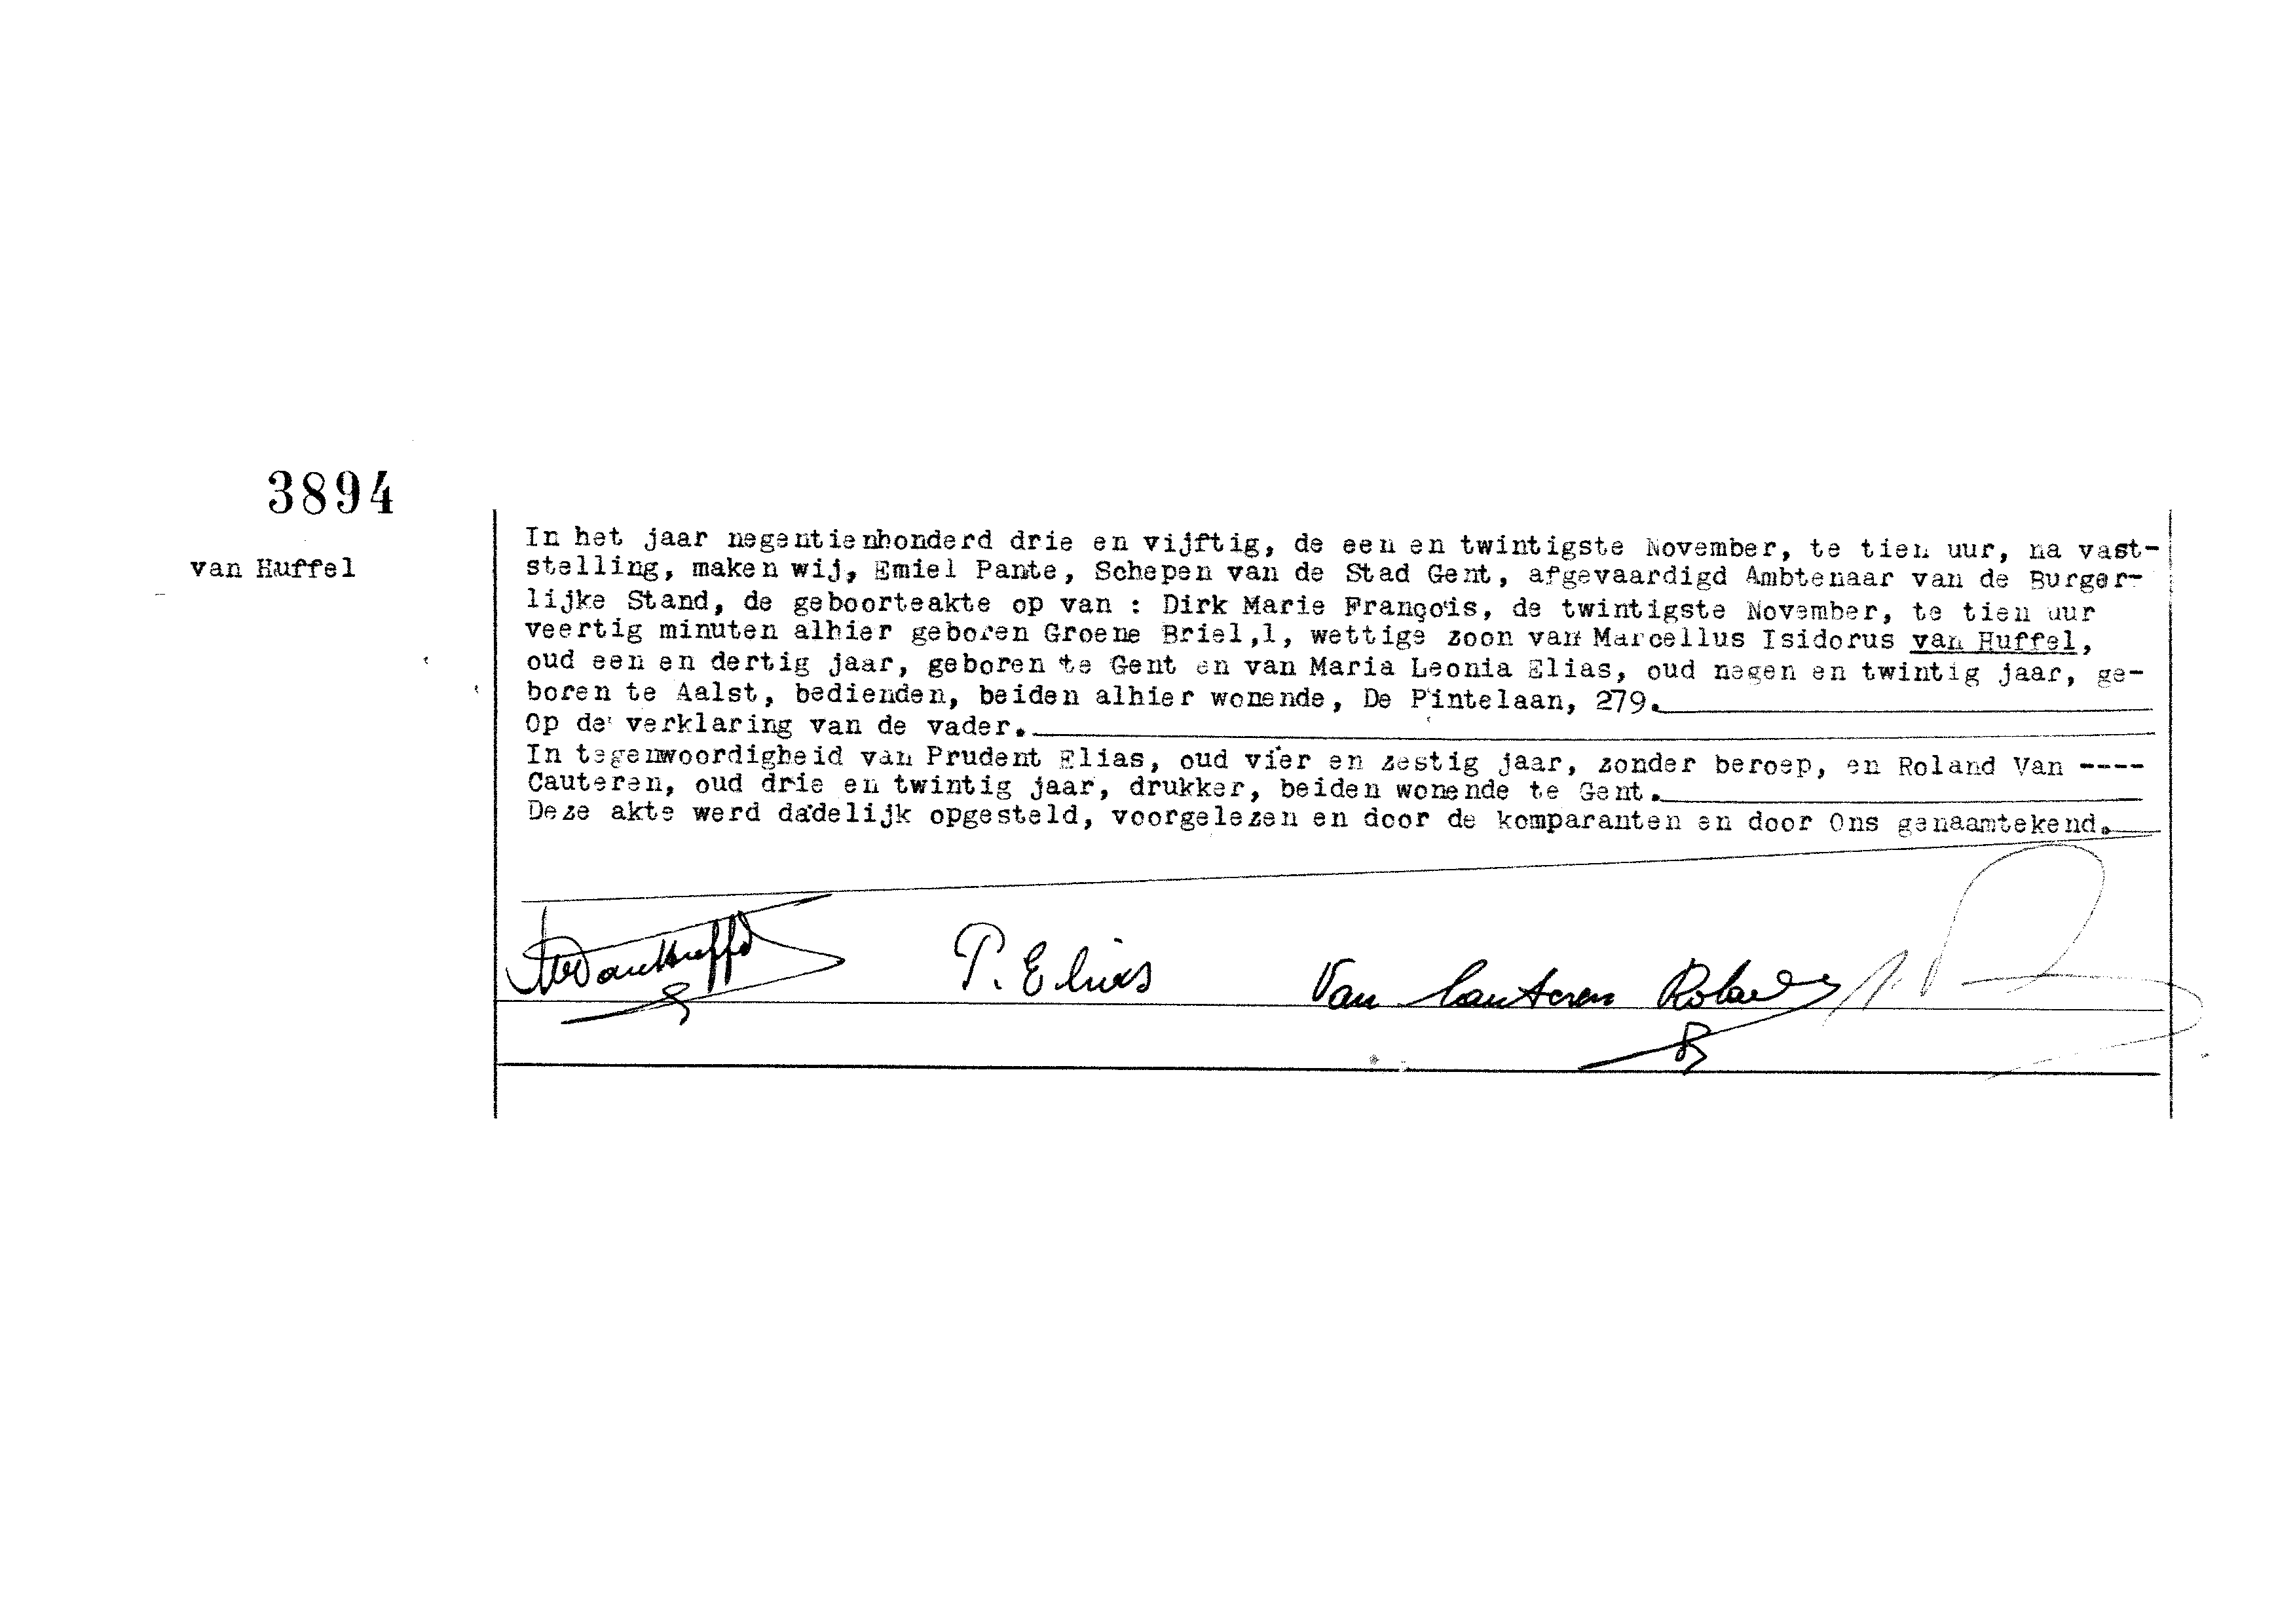 3894
van Huffel
In het jaar negentienhonderd drie en vijftig, de een en twintigste November, te tien uur, na vast-
stelling, maken wij, Emiel Pante, Schepen van de Stad Gent, afgevaardigd Ambtenaar van de Burger-
lijke Stand, de geboorteakte op van : Dirk Marie François, de twintigste November, te tien uur
veertig minuten alhier geboren Groene Briel,1, wettige zoon van Marcellus Isidorus van Huffel,
oud een en dertig jaar, geboren te Gent en van Maria Leonia Elias, oud negen en twintig jaar, ge-
boren te Aalst, bedienden, beiden alhier wonende, De Pintelaan, 279.
Op de verklaring van de vader.
In tegenwoordigheid van Prudent Elias, oud vier en zestig jaar, zonder beroep, en Roland Van ----
Cauteren, oud drie en twintig jaar, drukker, beiden wonende te Gent.
Deze akte werd dadelijk opgesteld, voorgelezen en door de komparanten en door Ons genaamtekend.
VanHuffel P. Elias Van Cauteren Roland